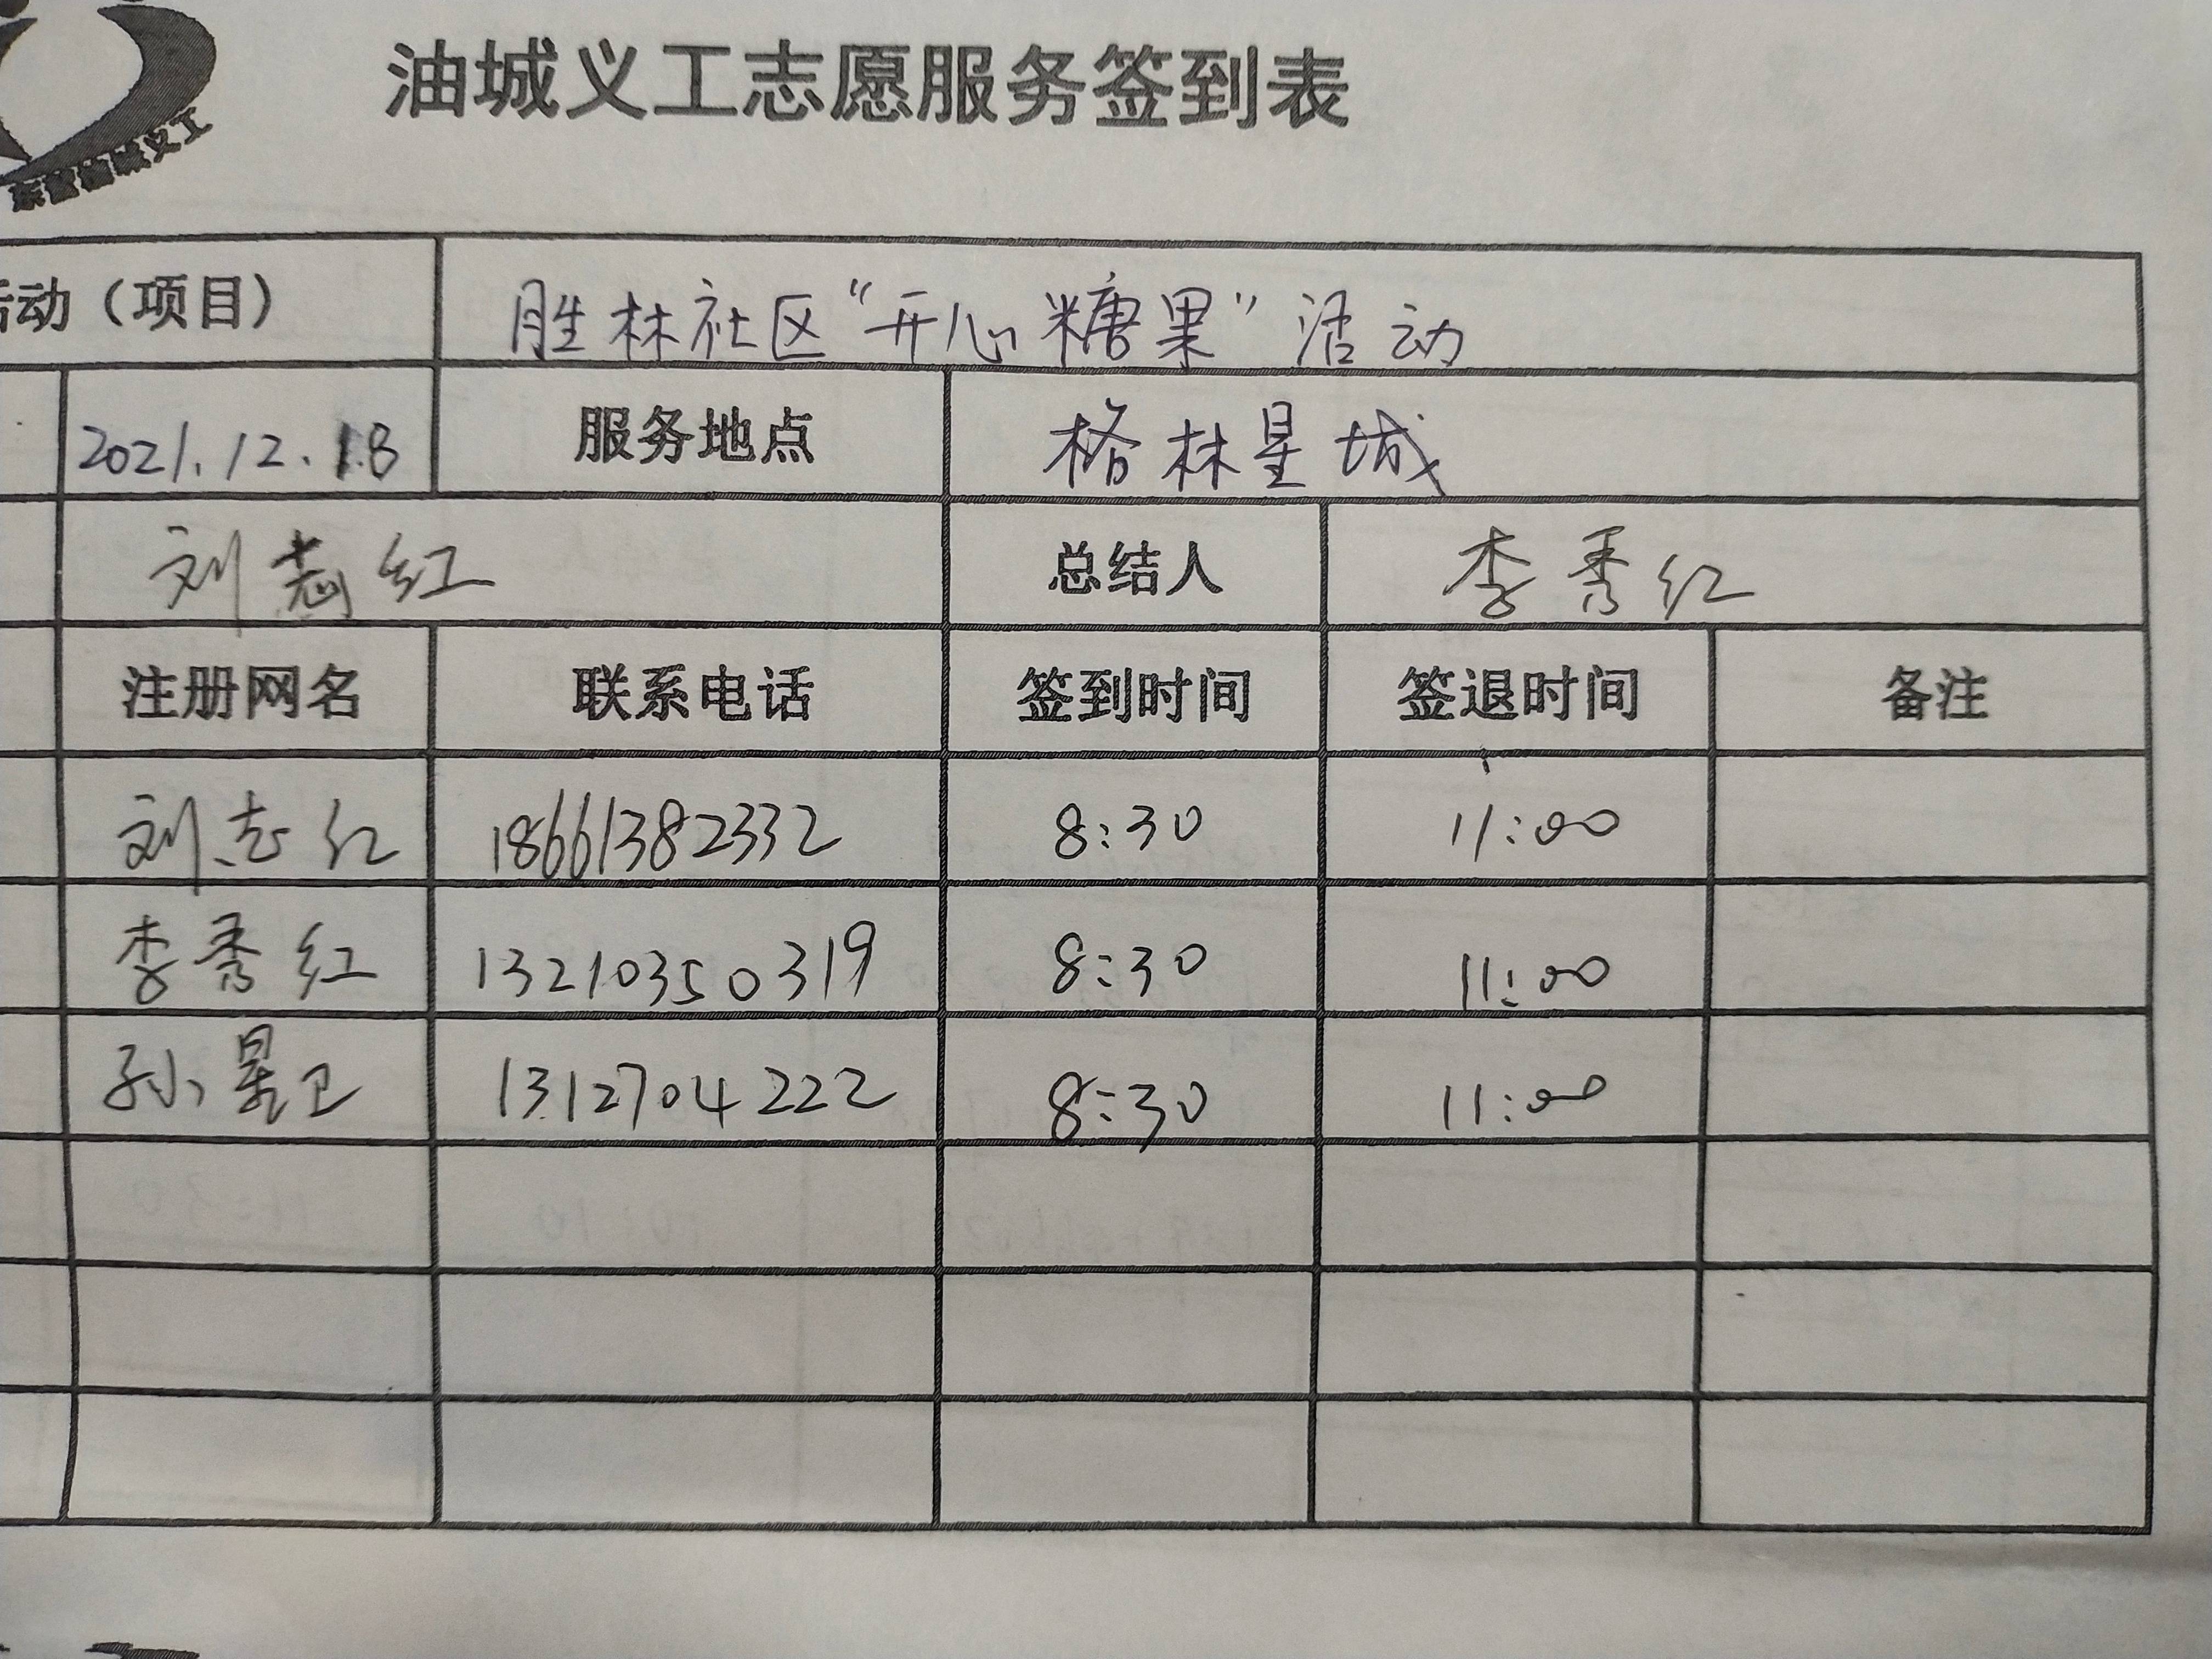 东营油城义工
油城义工志愿服务签到表
活动（项目） 胜林社区“开心糖果”活动
2021.12.18 服务地点 格林星城
刘志红 总结人 李秀红
注册网名 联系电话 签到时间 签退时间 备注
刘志红 18661382332 8:30 11:00
李秀红 13210350319 8:30 11:00
孙 卫 1312704222 8:30 11:00